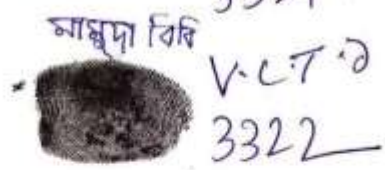 মামুদা বিবি
V.C.T.D
3322